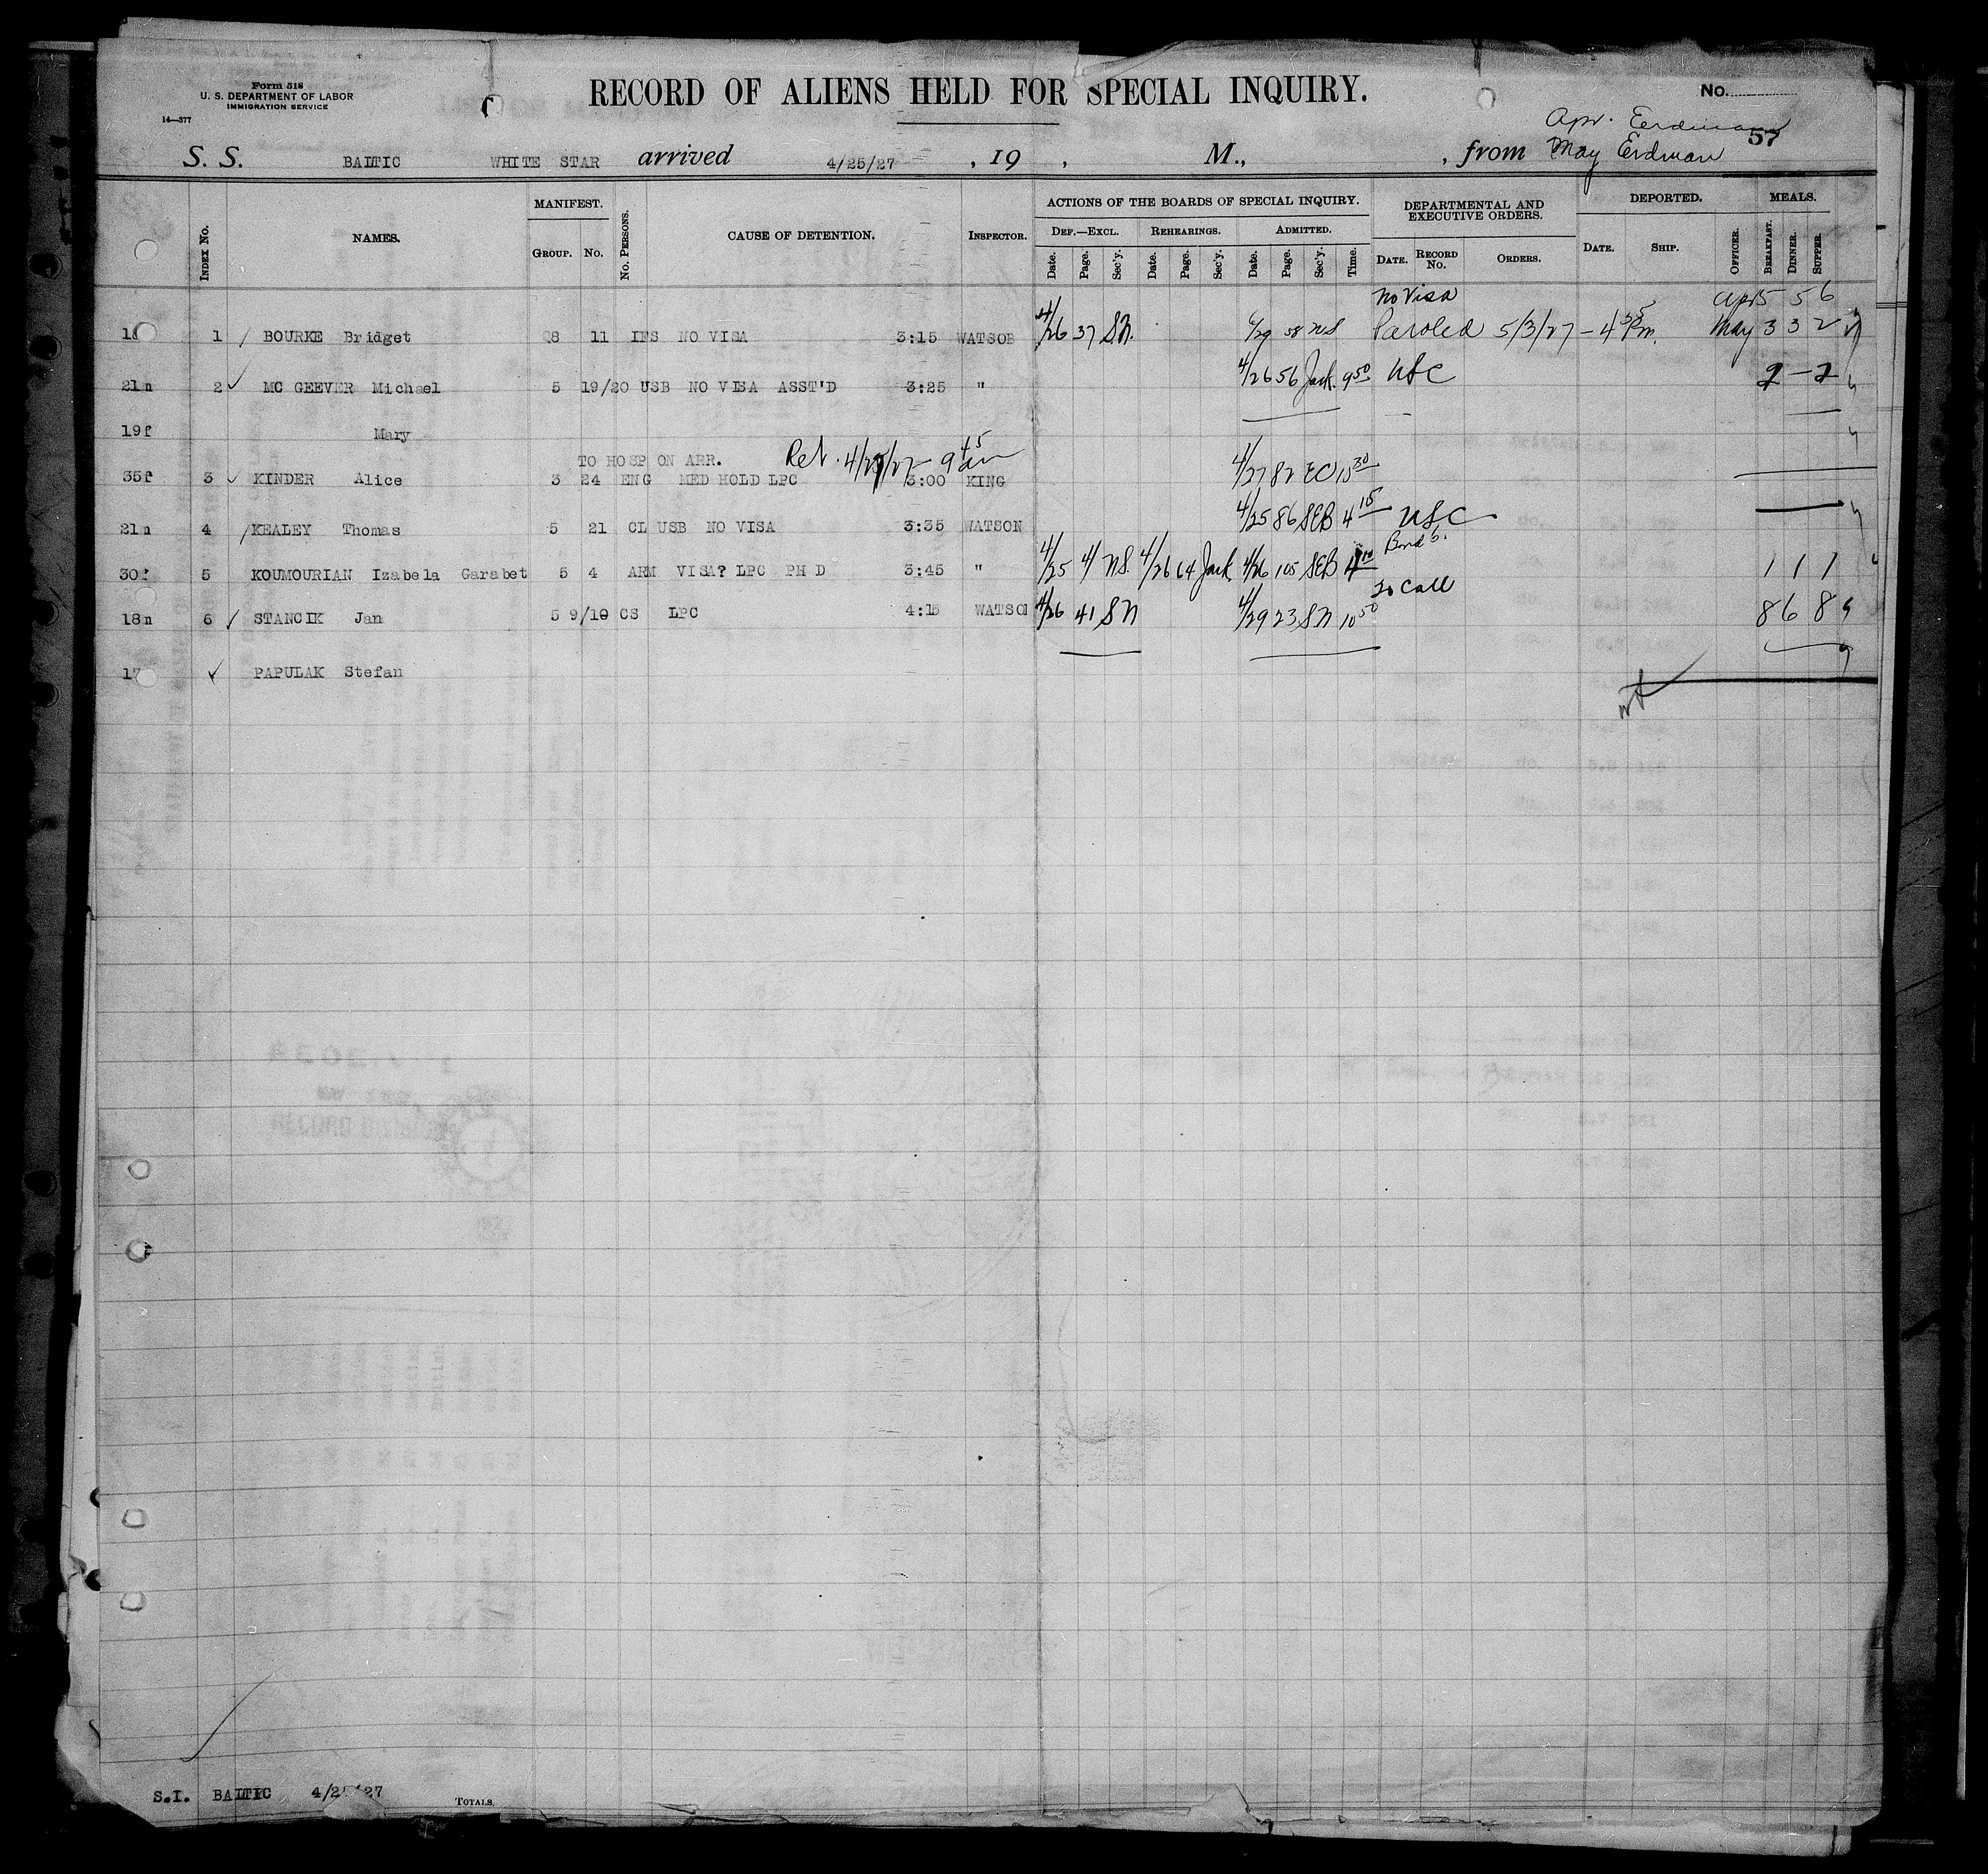 Form 518
U. S. DEPARTMENT OF LABOR
IMMIGRATION SERVICE
14—377
RECORD OF ALIENS HELD FOR SPECIAL INQUIRY.
No.
57
Apr. Eerdman
S. S. BALTIC WHITE STAR arrived 4/25/27 , 19 , M., , from May Erdman
INDEX NO. NAMES. MANIFEST. GROUP. NO. NO. PERSONS. CAUSE OF DETENTION. INSPECTOR.
ACTIONS OF THE BOARDS OF SPECIAL INQUIRY. DEF.—EXCL. Date. Page. Sec'y. REHEARINGS. Date. Page. Sec'y. ADMITTED. Date. Page. Sec'y. Time.
DEPARTMENTAL AND EXECUTIVE ORDERS. DATE. RECORD NO. ORDERS.
DEPORTED. DATE. SHIP. OFFICER.
MEALS. BREAKFAST. DINNER. SUPPER.
No Visa Apr 5 5 6
1 BOURKE Bridget 28 11 NO VISA 3:15 WATSOB 4/26 37 S.N. 6/29 58 NS Paroled 5/3/27 – 4 35 Pm. May 3 3 2
21m 2 MC GEEVER Michael 5 19/20 USB NO VISA ASST'D 3:25 " 4/26 56 Jack 9 50 USC 2 – 2
19f Mary
TO HOSP ON ARR. Ret. 4/27/27 9 45 am
35f 3 KINDER Alice 3 24 ENG MED HOLD LPC 3:00 KING 4/27 82 EC 10 30
21m 4 KEALEY Thomas 5 21 CL USB NO VISA 3:35 WATSON 4/25 86 SEB 4 15 USC
Bond
30f 5 KOUMOURIAN Izabela Garabet 5 4 ARM VISA? LPC PH D 3:45 " 4/25 4 NS. 4/26 64 Jack 4/26 105 SEB 4 10 1 1 1
To Call
18m 6 STANCIK Jan 5 9/10 CS LPC 4:15 WATSON 4/26 41 SN 4/29 23 SN 10 50 8 6 8
17 PAPULAK Stefan
S.I. BALTIC 4/25/27
TOTALS.